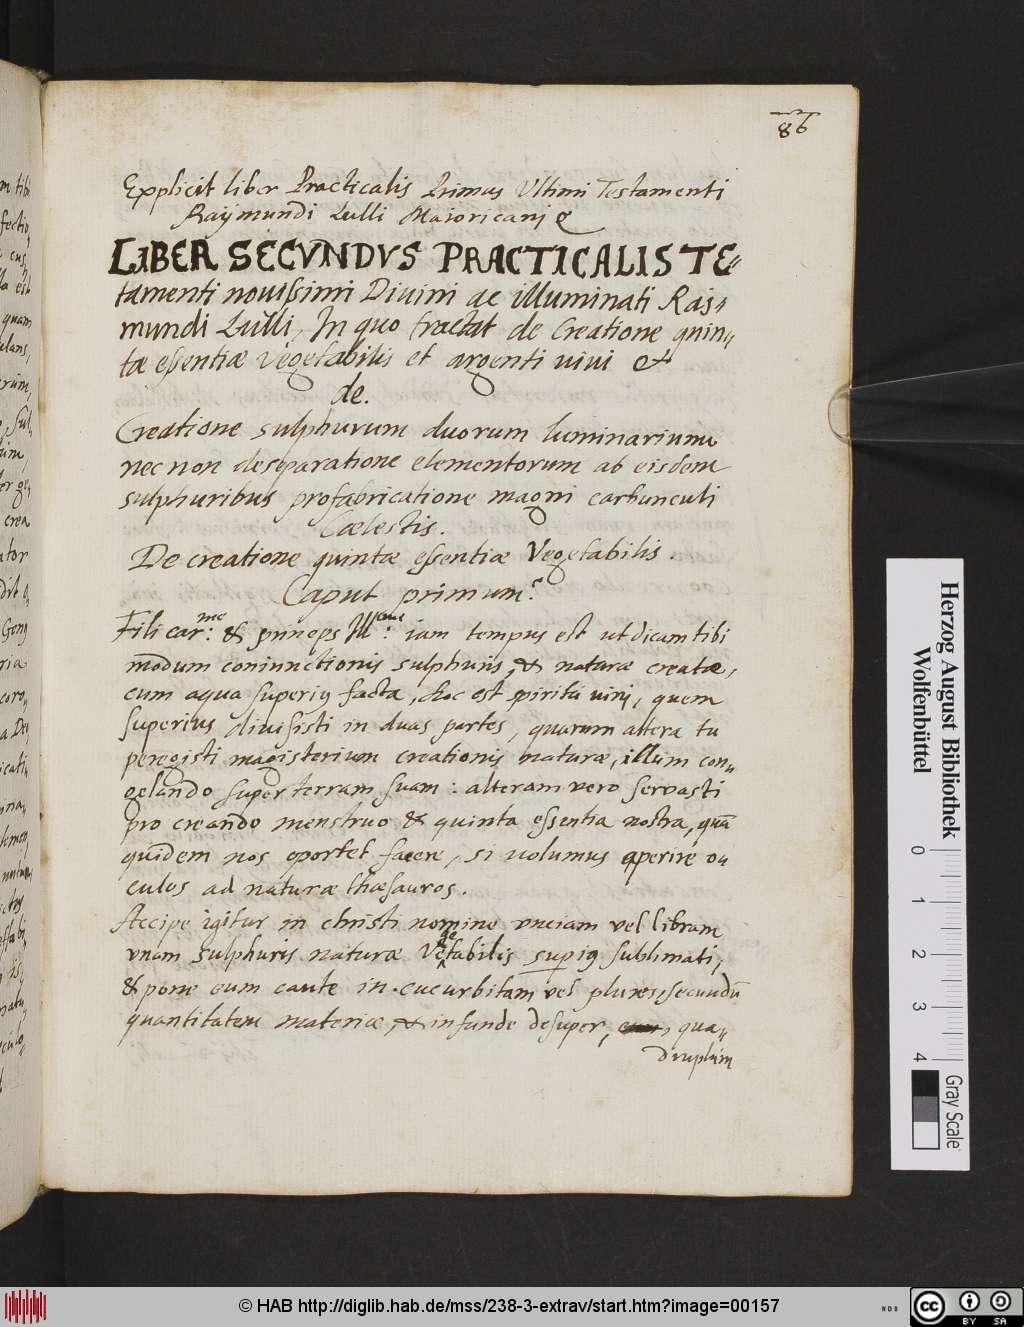 86
Explicit liber Practicalis Primus Ultimi Testamenti
Raijmundi Lulli Maioricanj
LIBER SECVNDVS PRACTICALIS TE-
tamenti novissimi Divini ac illuminati Raij-
mundi Lulli, In quo tractat de Creatione quin-
tæ essentiæ vegetabilis et argenti vivi &
de.
Creatione sulphurum duorum luminarium
nec non de separatione elementorum ab eisdem
sulphuribus pro fabricatione magni carbunculi
Cælestis.
De creatione quintæ essentiæ Vegetabilis.
Caput primum.
Fili car:me & princeps Ill:me iam tempus est ut dicam tibi
modum coniunctionis sulphuris, & naturæ creatæ,
cum aqua superig facta, hoc est spiritu vinj, quem
superius divisisti in duas partes, quarum altera tu
peregisti magisterium creationis naturæ, illum con-
gelando super terram suam: alteram vero servasti
pro creando menstruo & quinta essentia nostra, quā
quidem nos oportet facere, si volumus aperire o-
culos ad naturæ thæsauros.
Accipe igitur in christi nomine vnciam vel libram
vnam sulphuris naturæ Vegetabilis superig sublimati,
& pone eum caute in cucurbitam vel plures, secundū
quantitatem materiæ, & infunde desuper, qua-
druplum
Herzog August Bibliothek
Wolfenbüttel
0 1 2 3 4
Gray Scale
© HAB http://diglib.hab.de/mss/238-3-extrav/start.htm?image=00157
cc BY SA